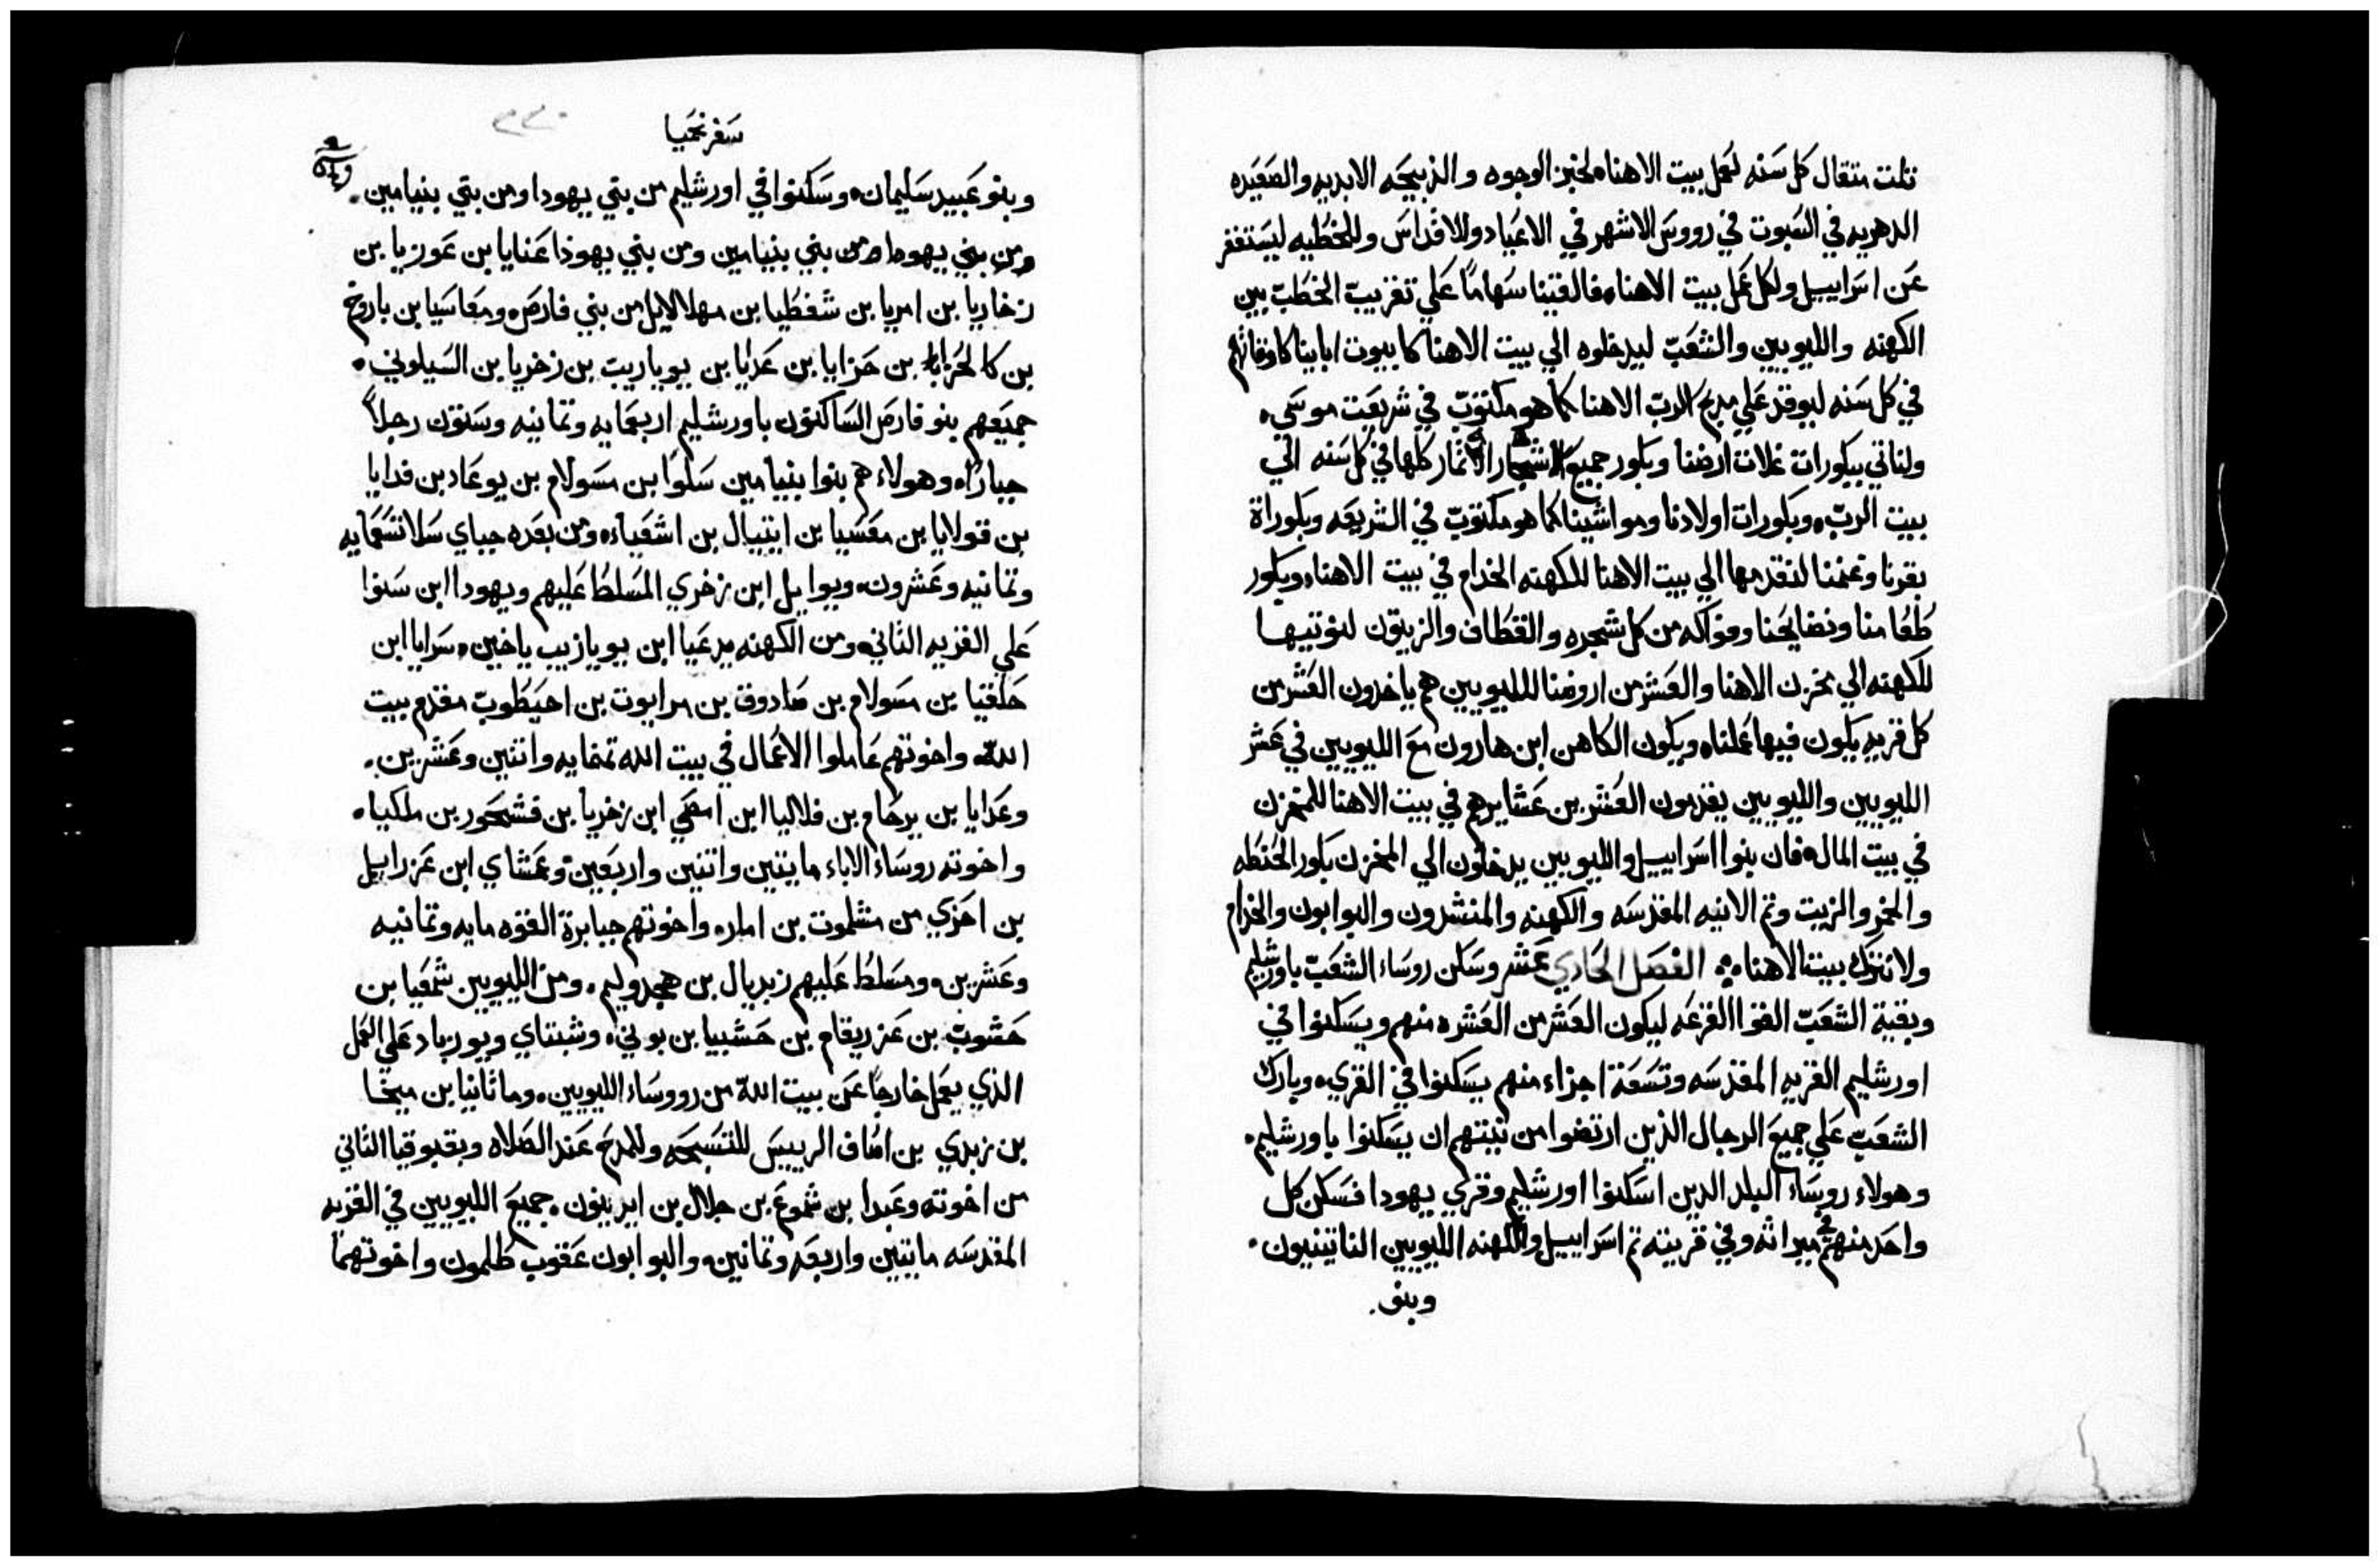 تلت متقال كل سَنه لعَمل بيت الاهناه لخبز الوجوه والذبيحَه الابديه والصَعَيده
الدهريه في السَبوت في رووسَ الاشهر في الاعَياد وللاقداسَ وللخطيه ليسَتغفر
عَن اسَراييل ولكل عَمل بيت الاهناه فالقينا سَهامًا عَلي تغزيب الحَطبَ بين
الكهنه والليويين والشعَبَ ليدخلوه الي بيت الاهنا كا بيوت ابايناكاوقاتهم
في كل سَنه ليوقد عَلي مدبح الربَ الاهنا كما هو مكتوبَ في شريعَت موسَي.
ولناتي ببكورات غلات ارضنا وبكور جميعَ اشجار الاتمار كلها في كل سَنه الي
بيت الربَ. وبكورات اولادنا ومواشينا كما هو مكتوبَ في الشريعَه وبكوراة
بقرنا وغنمنا لنقدمها الي بيت الاهنا للكهنه الخدام في بيت الاهناه وبكور
طعَامنا ونضايحَنا وفواكه من كل شجره والقطاف والزيتون لنوتيها
للكهنه الي مخزن الاهنا والعَشر من اروضنا لللليويين هم ياخدون العَشر من
كل قريه يكون فيها عَملناه ويكون الكاهن ابن هارون معَ الليويين في عَشر
الليويين والليويين يقدمون العَشر بن عَشايرهم في بيت الاهنا للمخزن
في بيت المال فان بنوا اسَراييل والليويين يدخلون الي المخزن بكور الحَنطه
والخمر والزيت وتم الانيه المقدسَه والكهنه والمنشدون والبوابون والخدام
ولا نترك بيت الاهناه الفصَل الحَادي عَشر وسَكن روسَاء الشعَبَ باورشليم
وبقية الشعَبَ القوا القرعَه ليكون العَشر من العَشره منهم ويسَكنوا في
اورشليم القريه المقدسَه وتسَعَة اجزاء منهم يسَكنوا في القري. وبارك
الشعَبَ عَلي جميعَ الرجال الذين ارتضوا من نيتهم ان يسَكنوا باورشليم.
وهولاء روسَاء البلد الدين اسَكنوا اورشليم وقري يهودا فسَكن كل
واحَد منهم في ميراثه وفي قريته تم اسَراييل والكهنه الليويين الناتينيون.
وبنو.
سَفر نحَميا
٢٣٠
وبنو عَبيد سَليمان. وسَكنوا في اورشليم من بتي يهودا ومن بتي بنيامين.
ومن بني يهودا ومن بني بنيامين ومن بني يهوذا عَنايا بن عَوزيا بن
زخاريا بن امريا بن شفطيا بن مهلالايل من بني فارصَ. ومعَاسَيا بن باروخ
بن كالحَزا بن حَزايا بن عَدايا بن يوياريت بن زخريا بن السَيلوني.
جميعَهم بنو فارصَ السَاكنون باورشليم اربعَمايه وتمانيه وسَتون رجلاً
جباراه وهولاء هم بنوا بنيامين سَلوا بن مسَولام بن يوعَاد بن فدايا
بن قتولايا بن معَسَيا بن ايتيال بن اشعَياءه ومن بعَده جباي سَلا تسَعَمايه
وتمانيه وعَشرون. ويواييل ابن زخري المسَلط عَليهم ويهودا ابن سَنوا
عَلي القريه التاني. ومن الكهنه يدعَيا ابن يويازيب ياخين. سَرايا ابن
حَلقيا بن مسَولام بن صَادوق بن مرايوت بن احَيطوبَ مقدم بيت
اللهَ. واخوتهم عَاملوا الاعَمال في بيت الله تمنمايه واتنين وعَشرين.
وعَدايا بن يرحَام بن فلاليا ابن امصَي ابن زخريا بن فشحَور بن ملكياه
واخوته روسَاء الاباء مايتين واتنين واربعَين وعَمشاي ابن عَزراييل
بن احَزي بن مشلموت بن امار. واخوتهم جبابرة القوه مايه وتمانيه
وعَشرين. ومسَلط عَليهم زبديال بن هجدوليم. ومن الليويين شمعَيا بن
حَشوبَ بن عَزريقام بن حَشبيا بن بوني. وشبتاي ويورباد عَلي العَمل
الذي يعَمل خارجاً عَن بيت اللهَ من رووسَاء الليويين. وماثانيا بن ميخا
بن زبدي بن اصَاف الرييسَ للتسَبحَه وللمدحَ عَند الصَلاه وبقبوقيا التاني
من اخوته وعَبدا بن شموعَ بن جلال بن ايديتون. جميعَ الليويين في القريه
المقدسَه مايتين واربعَه وتمانين. والبوابون عَقوب طلمون واخوتهما